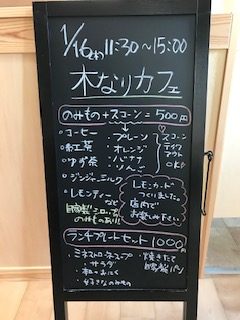 1/16(木)11:30~15:00
木なりカフェ
のみもの+スコーン=500円
・コーヒー
・紅茶
・ゆず茶
・ジンジャーミルク
・レモンティー など
自家製シロップの
のみものあり!!
・プレーン
・オレンジ
・バナナ
・りんご
スコーン
テイク
アウト
OK!
レモンカード
つくりました。
店内で
お楽しみ下さい
ランチプレートセット 1000円
・ミネストローネスープ
・サラダ
・お好きなのみもの
・焼きたて
自家製パン